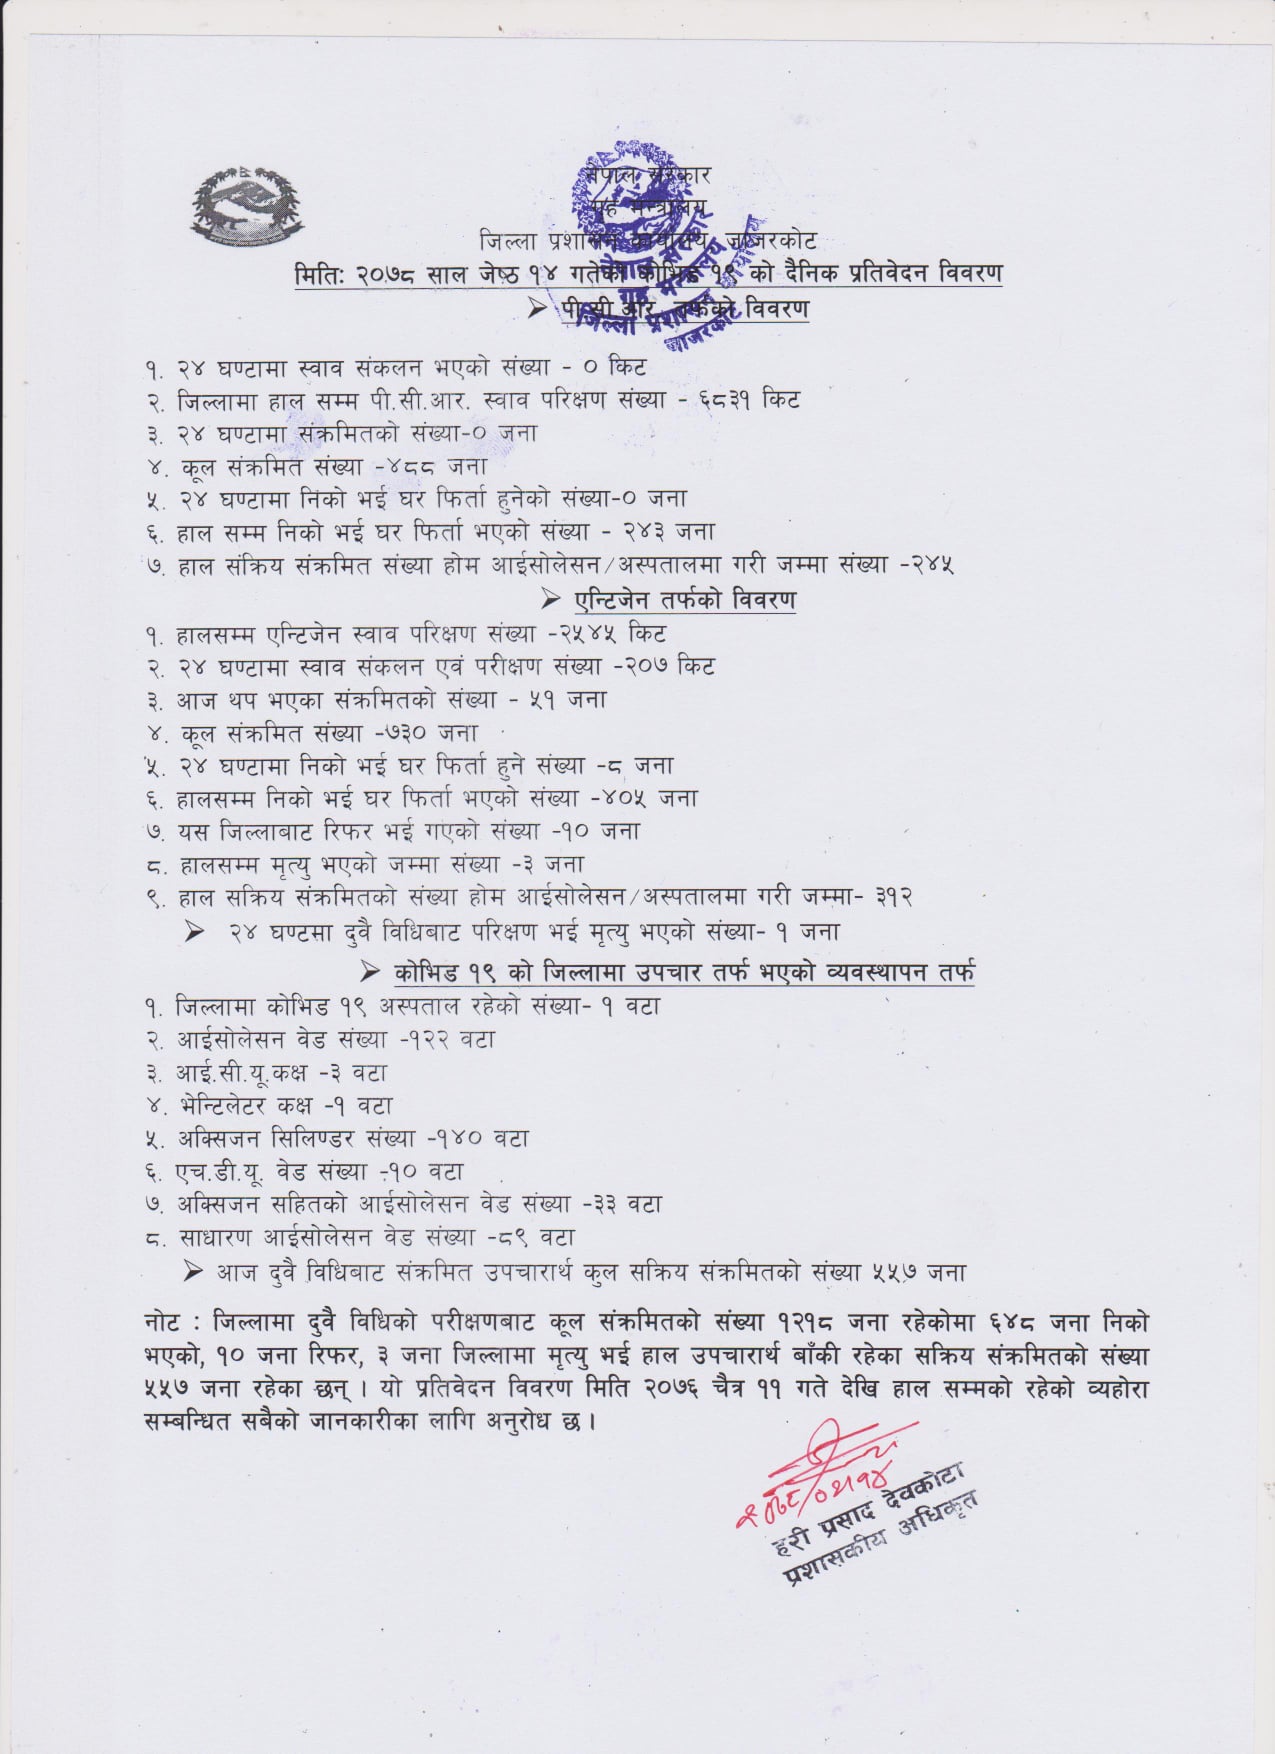 नेपाल सरकार
गृह मन्त्रालय
जिल्ला प्रशासन कार्यालय, जाजरकोट
मितिः २०७८ साल जेष्ठ १४ गतेको कोभिड १९ को दैनिक प्रतिवेदन विवरण
➢ पी.सी.आर. तर्फको विवरण
नेपाल सरकार
गृह मन्त्रालय
जिल्ला प्रशासन कार्यालय
जाजरकोट
१. २४ घण्टामा स्वाव संकलन भएको संख्या - ० किट
२. जिल्लामा हाल सम्म पी.सी.आर. स्वाव परिक्षण संख्या - ६८३१ किट
३. २४ घण्टामा संक्रमितको संख्या-० जना
४. कूल संक्रमित संख्या -४८८ जना
५. २४ घण्टामा निको भई घर फिर्ता हुनेको संख्या-० जना
६. हाल सम्म निको भई घर फिर्ता भएको संख्या - २४३ जना
७. हाल संक्रिय संक्रमित संख्या होम आईसोलेसन/अस्पतालमा गरी जम्मा संख्या -२४५
➢ एन्टिजेन तर्फको विवरण
१. हालसम्म एन्टिजेन स्वाव परिक्षण संख्या -२५४५ किट
२. २४ घण्टामा स्वाव संकलन एवं परीक्षण संख्या -२०७ किट
३. आज थप भएका संक्रमितको संख्या - ५१ जना
४. कूल संक्रमित संख्या -७३० जना
५. २४ घण्टामा निको भई घर फिर्ता हुने संख्या -८ जना
६. हालसम्म निको भई घर फिर्ता भएको संख्या -४०५ जना
७. यस जिल्लाबाट रिफर भई गएको संख्या -१० जना
८. हालसम्म मृत्यु भएको जम्मा संख्या -३ जना
९. हाल सक्रिय संक्रमितको संख्या होम आईसोलेसन/अस्पतालमा गरी जम्मा- ३१२
➢ २४ घण्टमा दुवै विधिबाट परिक्षण भई मृत्यु भएको संख्या- १ जना
➢ कोभिड १९ को जिल्लामा उपचार तर्फ भएको व्यवस्थापन तर्फ
१. जिल्लामा कोभिड १९ अस्पताल रहेको संख्या- १ वटा
२. आईसोलेसन वेड संख्या -१२२ वटा
३. आई.सी.यू.कक्ष -३ वटा
४. भेन्टिलेटर कक्ष -१ वटा
५. अक्सिजन सिलिण्डर संख्या -१४० वटा
६. एच.डी.यू. वेड संख्या -१० वटा
७. अक्सिजन सहितको आईसोलेसन वेड संख्या -३३ वटा
८. साधारण आईसोलेसन वेड संख्या -८९ वटा
➢ आज दुवै विधिबाट संक्रमित उपचारार्थ कुल सक्रिय संक्रमितको संख्या ५५७ जना
नोट : जिल्लामा दुवै विधिको परीक्षणबाट कूल संक्रमितको संख्या १२१८ जना रहेकोमा ६४८ जना निको
भएको, १० जना रिफर, ३ जना जिल्लामा मृत्यु भई हाल उपचारार्थ बाँकी रहेका सक्रिय संक्रमितको संख्या
५५७ जना रहेका छन् । यो प्रतिवेदन विवरण मिति २०७६ चैत्र ११ गते देखि हाल सम्मको रहेको व्यहोरा
सम्बन्धित सबैको जानकारीका लागि अनुरोध छ ।
हरी प्रसाद देवकोटा
प्रशासकीय अधिकृत